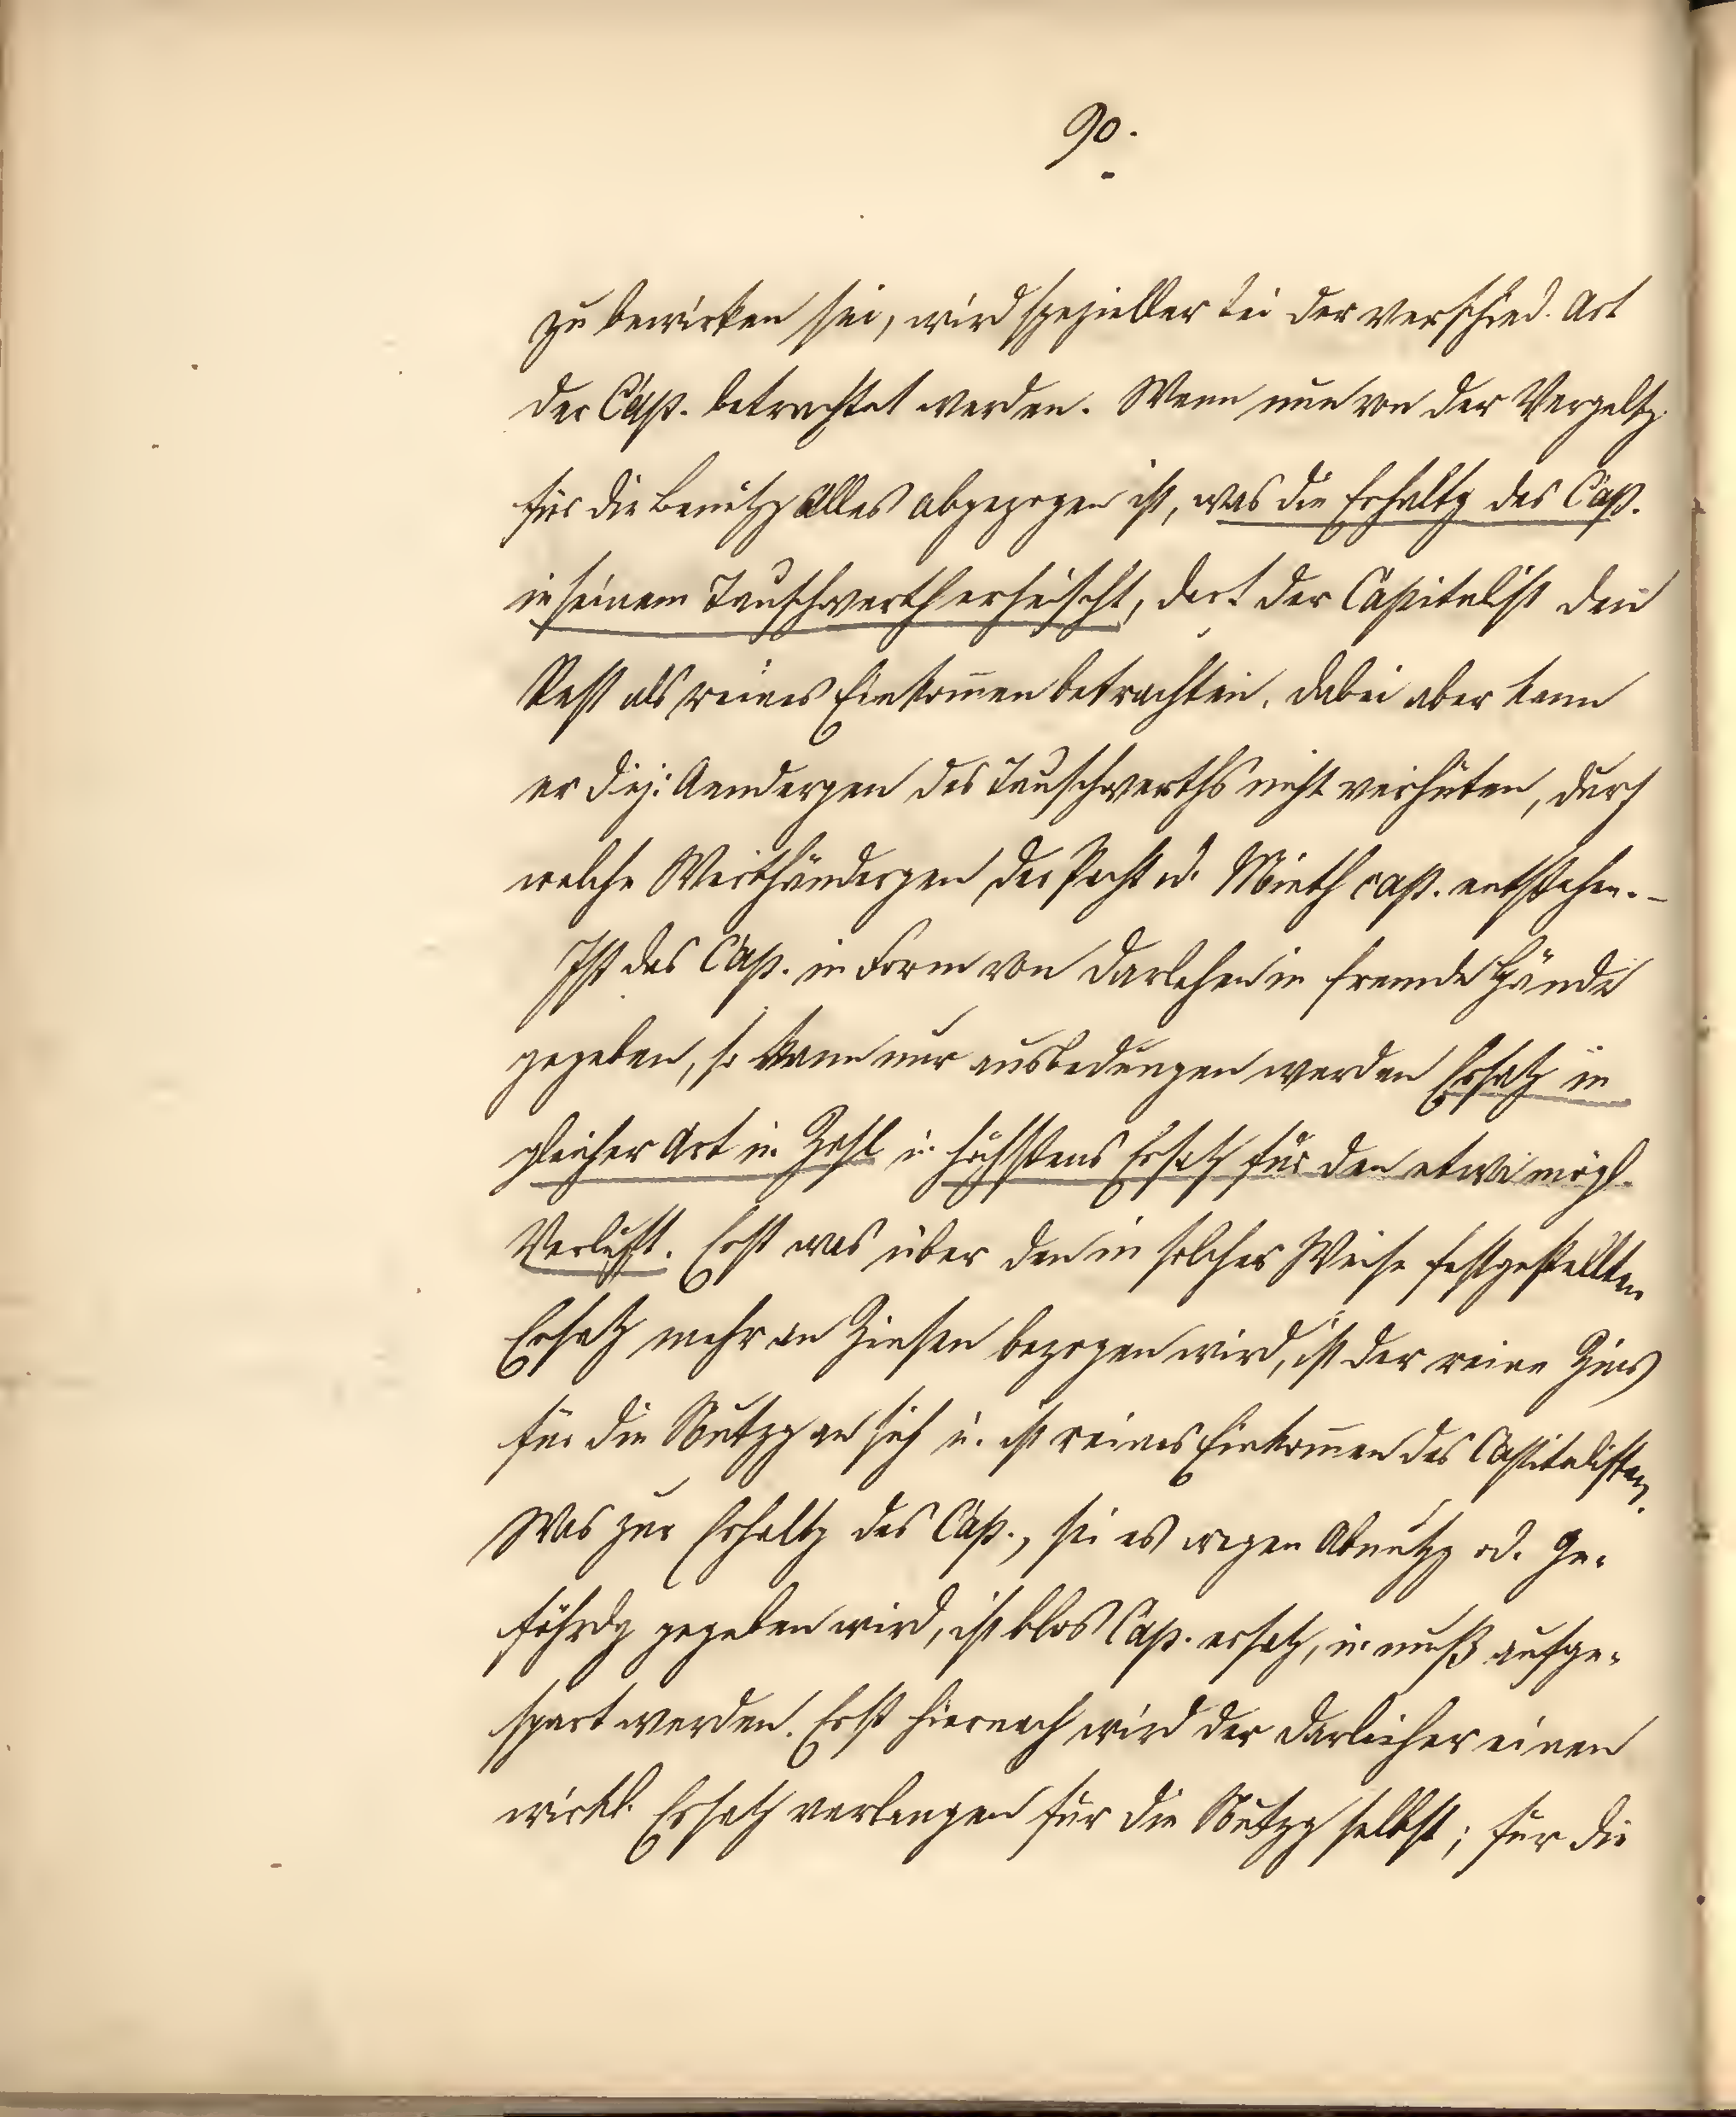 90.
zu bewirken sei, wird spezieller bei der verschied. Art
der Cap. betrachtet werden. Wenn nun von der Vergeltg
für die Benützg Alles abgezogen ist, was die Erhaltg des Cap.
in seinem Tauschwerth erheischt, darf der Capitalist den
Rest als reines Einkom̅en betrachten. Dabei aber kann
er diej: Aendergen des Tauschwerths nicht verhüten, durch
welche Werthändergen der Pacht od. Mieth cap. entstehen. –
Ist das Cap. in Form von Darlehen in fremde Hände
gegeben, so kann nur ausbedungen werden Ersatz in
gleicher Art u. Zahl u. höchstens Ersatz für den etwa mögl.
Verlust. Erst was über den in solcher Weise festgestellten
Ersatz mehr an Zinsen bezogen wird, ist der reine Zins
für die Nutzg an sich u. ist reines Einkom̅en des Capitalisten.
Was zur Erhaltg des Cap., sei es wegen Abnutzg od. Ge-
fährdg gegeben wird, ist blos Cap. ersatz, u. muß aufge-
spart werden. Erst hiernach wird der Darleiher einen
wirkl. Ersatz verlangen für die Nutzg selbst; für die